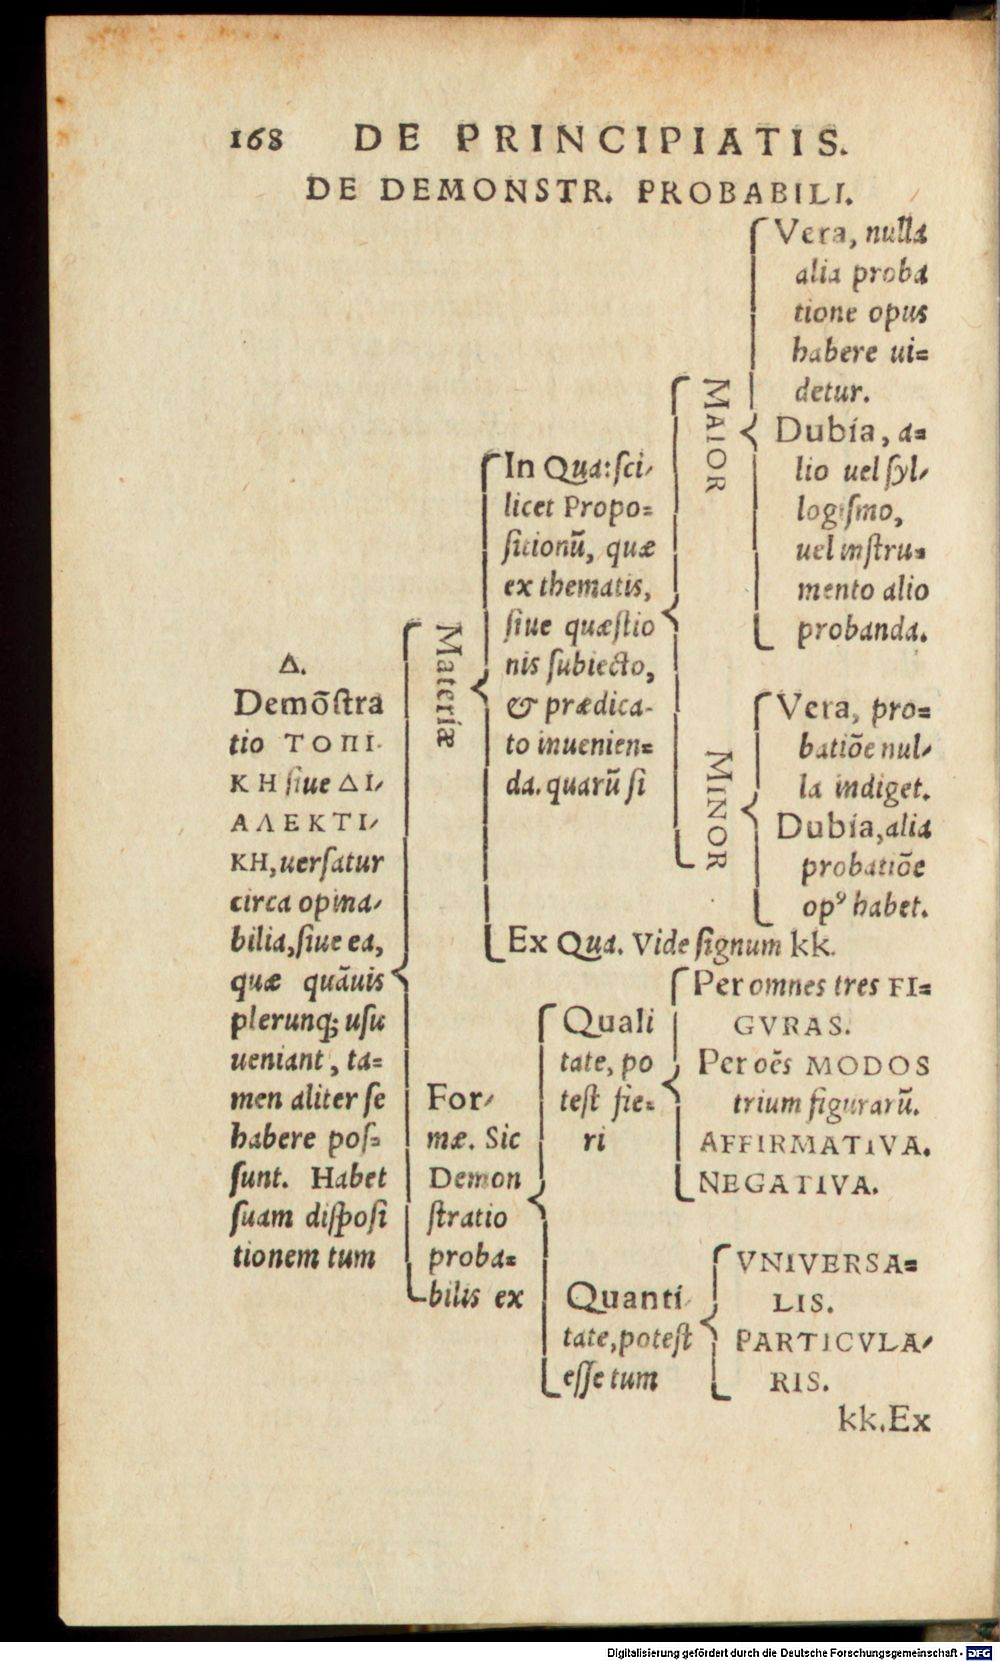 168 DE PRINCIPIATIS.
DE DEMONSTR. PROBABILI.
Δ.
Demõſtra
tio ΤΟΠΙ-
ΚΗ ſiue ΔΙ-
ΑΛΕΚΤΙ-
ΚΗ, uerſatur
circa opina-
bilia, ſiue ea,
quæ quãuis
plerunq; uſu
ueniant, ta=
men aliter ſe
habere poſ=
ſunt. Habet
ſuam diſpoſi
tionem tum
Materiæ
In Qua: ſci-
licet Propo=
ſitionũ, quæ
ex thematis,
ſiue quæſtio
nis ſubiecto,
& prædica-
to inuenien=
da. quarũ ſi
MAIOR
Vera, nulla
alia proba
tione opus
habere ui=
detur.
Dubia, a=
lio uel ſyl-
logiſmo,
uel inſtru=
mento alio
probanda.
MINOR
Vera, pro=
batiõe nul-
la indiget.
Dubia, alia
probatiõe
opꝰ habet.
Ex Qua. Vide ſignum kk.
For-
mæ. Sic
Demon
ſtratio
proba=
bilis ex
Quali
tate, po
teſt fie=
ri
Per omnes tres FI=
GVRAS.
Per oẽs MODOS
trium figurarũ.
AFFIRMATIVA.
NEGATIVA.
Quanti-
tate, poteſt
eſſe tum
VNIVERSA=
LIS.
PARTICVLA-
RIS.
kk. Ex
Digitalisierung gefördert durch die Deutsche Forschungsgemeinschaft - DFG